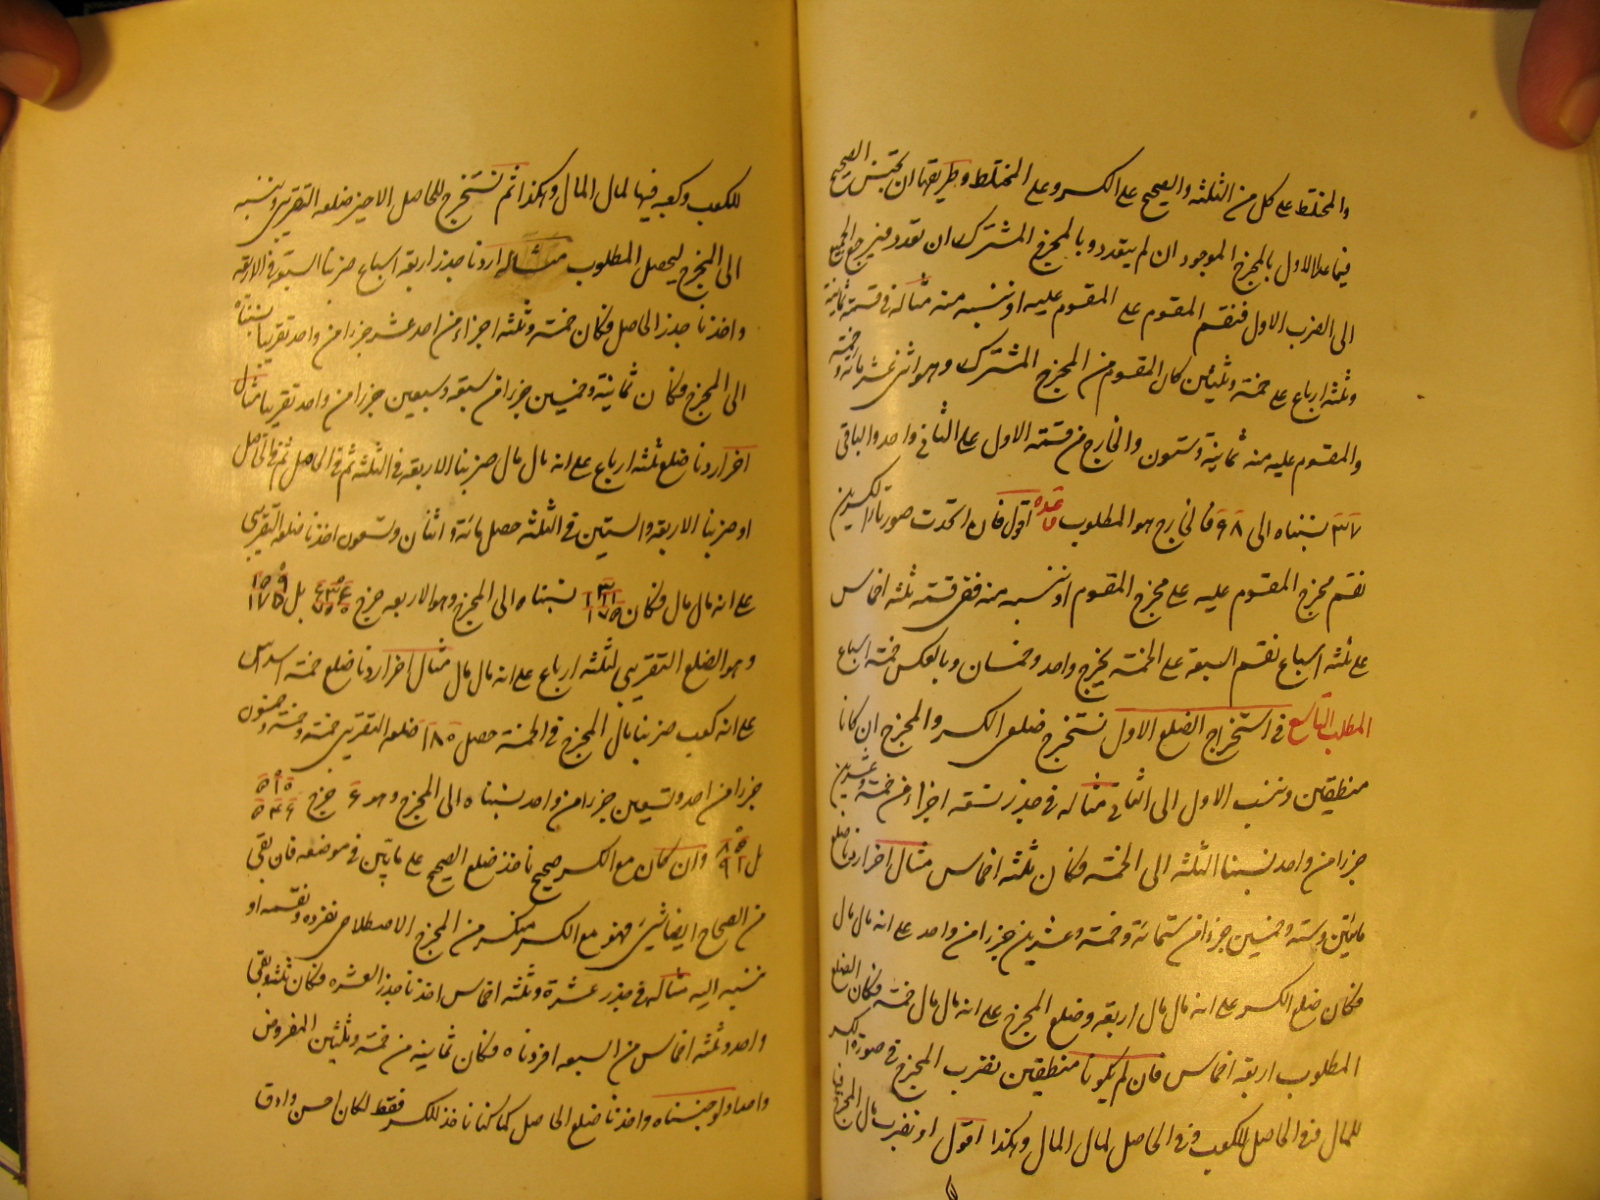 والمختلط على كل من الثلثة والصحيح على الكسر وعلى المختلط وطريقها ان تجنس الصحيح
فيما عدا الاول بالمخرج الموجود ان لم يتعدد وبالمخرج المشترك ان تعدد فيرجع الجميع
الى الضرب الاول فنقسم المقسوم على المقسوم عليه او ننسبه منه مثاله فى قسمة ثمانية
وثلثة ارباع على خمسة وثلثين كان المقسوم من المخرج المشترك وهو اثنى عشر مائة وخمسة
والمقسوم عليه منه ثمانية وستون والخارج من قسمة الاول على الثانى واحد والباقى
٣٧ نسبناه الى ٦٨ فالخارج هو المطلوب قعده اقول فان اتحدت صورتا الكسرين
نقسم مخرج المقسوم عليه على مخرج المقسوم او ننسبه منه ففى قسمة ثلثة اخماس
على ثلثة اسباع نقسم السبعة على الخمسة يخرج واحد وخمسان وبالعكس خمسة اسباع
المطلب التاسع فى استخراج الضلع الاول نستخرج ضلعى الكسر والمخرج ان كانا
منطقين وننسب الاول الى الثانى مثاله فى جذر تسعة اجزاء من خمسة وعشرين
جزءا من واحد نسبنا الثلثة الى الخمسة فكان ثلثة اخماس مثال اخر اردنا ضلع
مائتين وستة وخمسين جزءا من ستمائة وخمسة وعشرين جزءا من واحد على انه مال مال
فكان ضلع الكسر على انه مال مال اربعة وضلع المخرج على انه مال مال خمسة فكان الضلع
المطلوب اربعة اخماس فان لم يكونا منطقين نضرب المخرج فى صورة الكسر
للمال فى الحاصل للكعب فى الحاصل لمال المال وهكذا اقول او نضرب مال المخرج فيها
للكعب وكعبه فيها لمال المال وهكذا ثم نستخرج للحاصل الاخير ضلعه التقريبى وننسبه
الى المخرج ليحصل المطلوب مثاله اردنا جذر اربعة اسباع ضربنا السبعة فى الاربعة
واخذنا جذر الحاصل فكان خمسة وثلثة اجزاء من احد عشر جزءا من واحد تقريبا نسبناه
الى المخرج فكان ثمانية وخمسين جزءا من سبعة وسبعين جزءا من واحد تقريبا مثال
اخر اردنا ضلع ثلثة ارباع على انه مال مال ضربنا الاربعة فى الثلثة ثم فى الحاصل ثم فى الحاصل
او ضربنا الاربعة والستين فى الثلثة حصل مائة واثنان وتسعون اخذنا ضلعه التقريبى
على انه مال مال فكان نسبناه الى المخرج وهو الاربعة خرج بل
وهو الضلع التقريبى لثلثة ارباع على انه مال مال مثال اخر اردنا ضلع خمسة اسداس
على انه كعب ضربنا مال المخرج فى الخمسة حصل ١٨٠ ضلعه التقريبى خمسة وخمسة وخمسون
جزءا من احد وتسعين جزءا من واحد نسبناه الى المخرج وهو ٦ خرج
بل وان كان مع الكسر صحيح ناخذ ضلع الصحيح على ما تبين فى موضعه فان بقى
من الصحاح ايضا شئ فهو مع الكسر منكسر من المخرج الاصطلاحى نفرده ونقسمه او
ننسبه اليه مثاله فى جذر عشرة وثلثة اخماس اخذنا جذر العشرة فكان ثلثة وبقى
واحد وثلثة اخماس من السبعة افردناه فكان ثمانية من خمسة وثلثين المفروض
واحدا ولو جنسناه واخذنا ضلع الحاصل كما كنا ناخذ للكسر فقط لكان احسن وادق